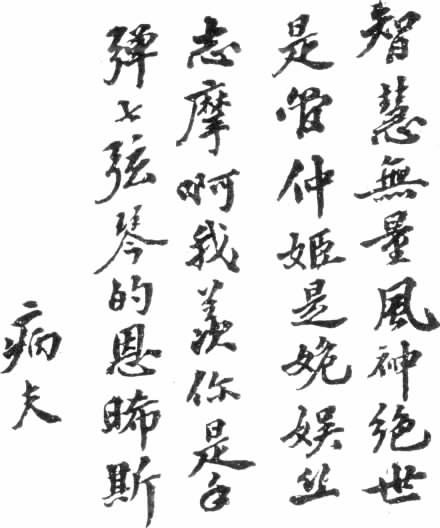 智慧無量風神絕世
是管仲姬是娩娛丝
志摩啊我羨你是手
彈七弦琴的恩晞斯
病夫